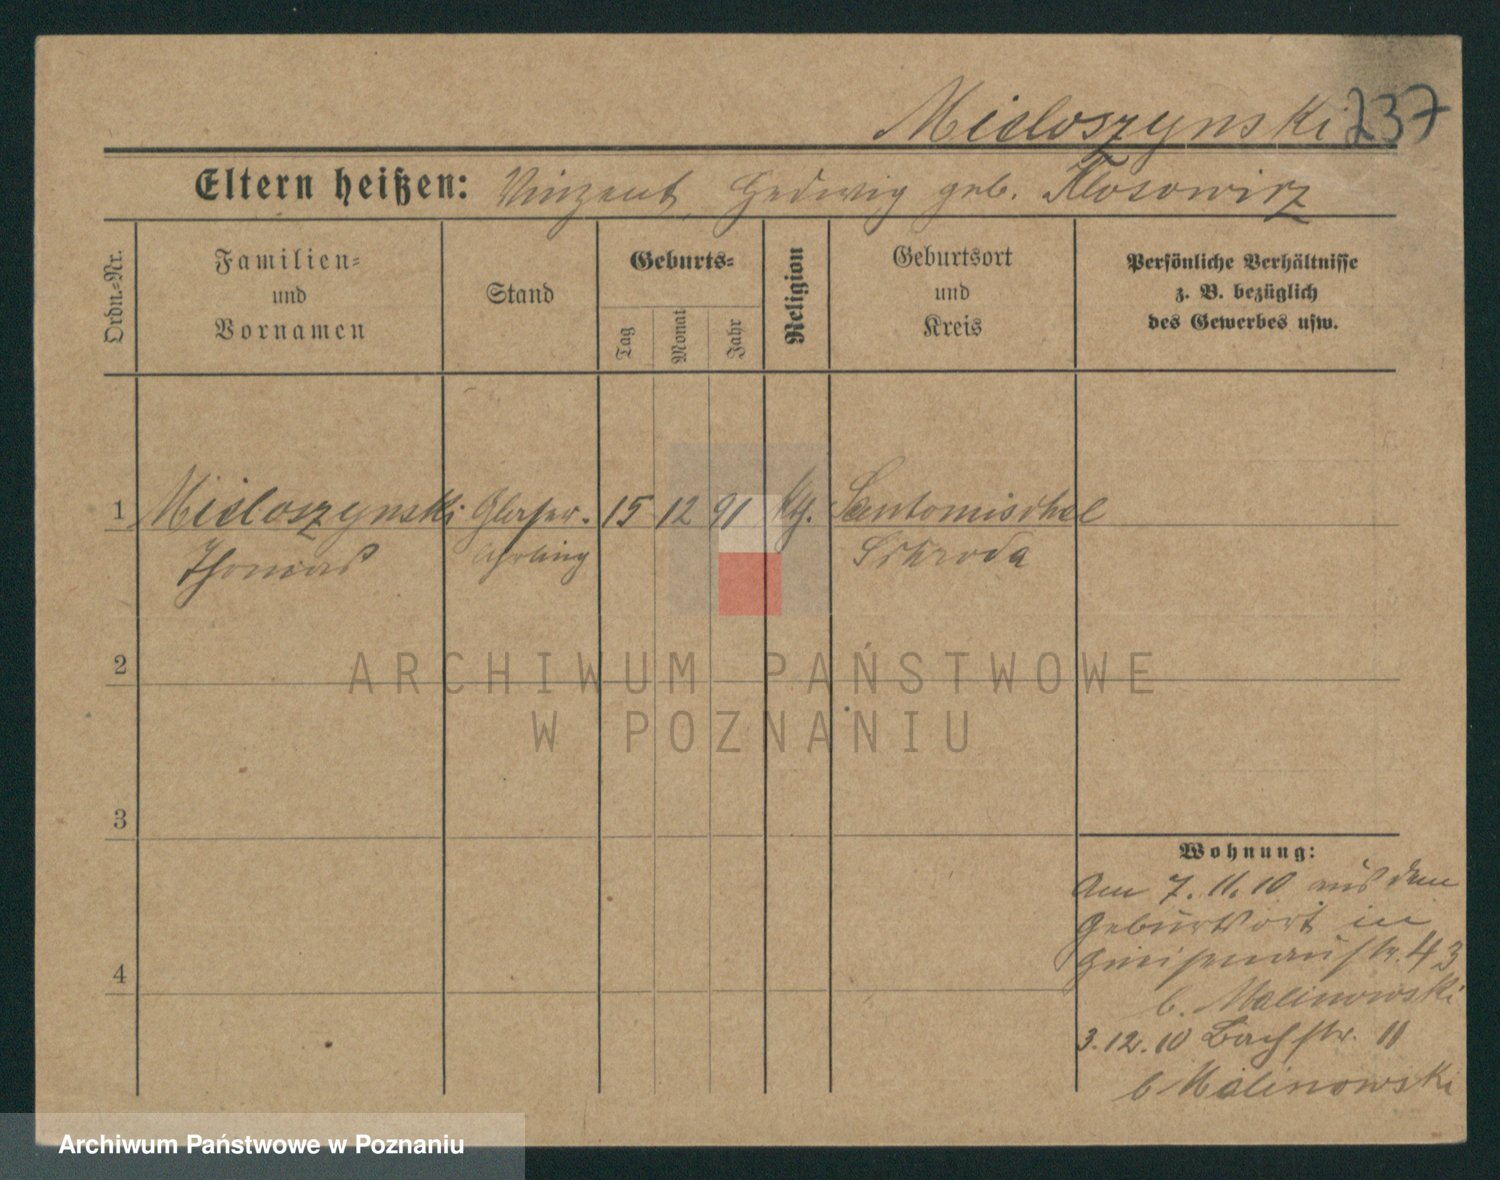 Mieloszynski 237
Eltern heißen: Vinzent, Hedwig geb. Klosowicz
Ordn.=Nr.
Familien=
und
Vornamen
Stand
Geburts=
Tag
Monat
Jahr
Religion
Geburtsort
und
Kreis
Persönliche Verhältnisse
z. B. bezüglich
des Gewerbes usw.
1 Mieloszynski Glaser- 15 12 91 Santomischel
Thomas Schroda
2
ARCHIWUM PAŃSTWOWE
W POZNANIU
3
4
Wohnung:
Am 7. 11. 10 aus dem
Geburtsort in
Gneisenaustr. 43
b. Malinowski
3. 12. 10 Bachstr. 11
b Malinowski
Archiwum Państwowe w Poznaniu